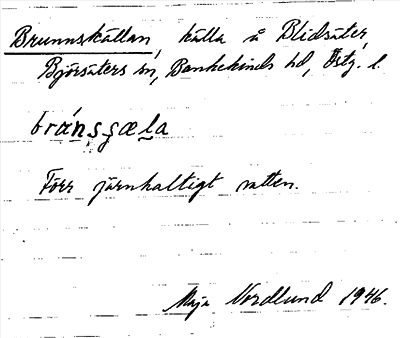 Brunnskällan, källa å Blidsäter,
Björsäters sn, Bankekinds hd, Östg. l.
bránsçæla
Förr järnhaltigt vatten.
Maja Nordlund 1946.